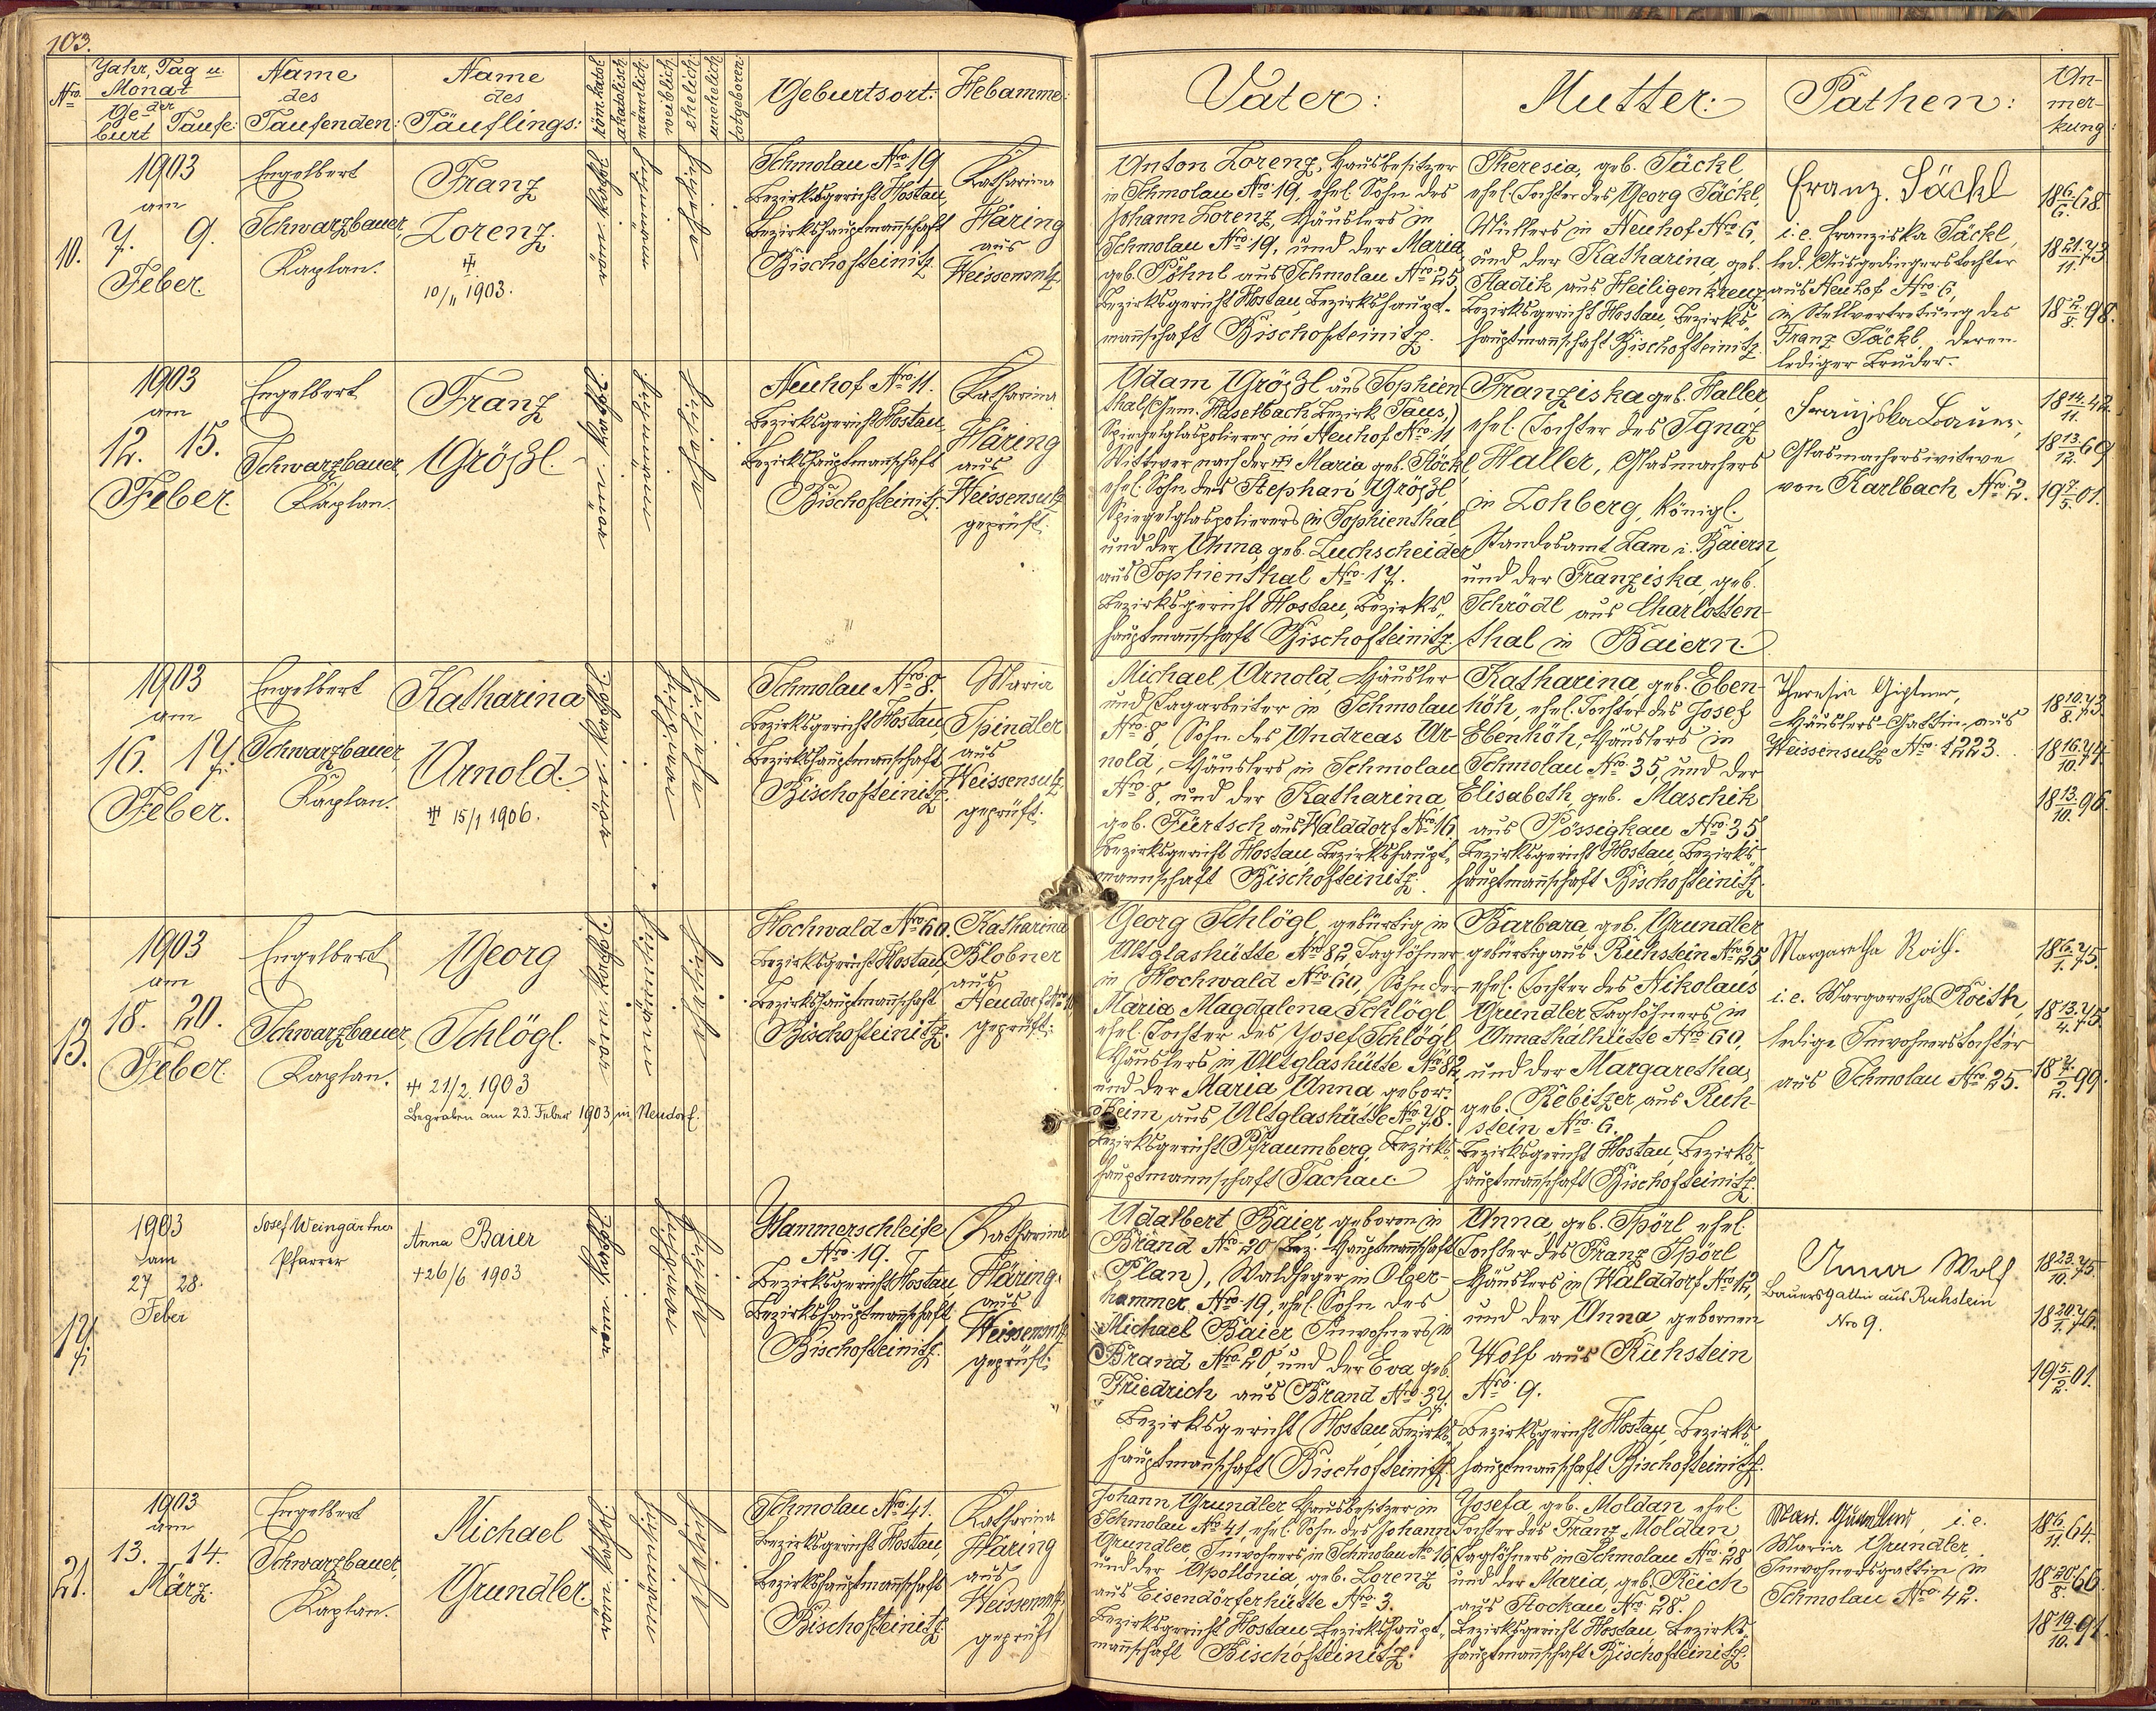 103.
Nro.
Jahr, Tag u.
Monat
der
Ge-
burt
Taufe:
Name
des
Taufenden:
Name
des
Täuflings:
röm. kathol.
akatolisch
männlich
weiblich
ehelich
unehelich
totgeboren
Geburtsort:
Hebamme:
Vater:
Mutter:
Pathen:
An-
mer-
kung:
10.
1903
am
7. 9.
Feber.
Engelbert
Schwarzbauer,
Kaplan.
Franz
Lorenz.
10/11 1903.
Schmolau Nro. 19
Bezirksgericht Hostau,
Bezirkshauptmannschaft
Bischofteinitz.
Katharina
Häring
aus
Weissensulz
Anton Lorenz, Hausbesitzer
in Schmolau Nro. 19, ehel. Sohn des
Johann Lorenz, Häuslers in
Schmolau Nro. 19, und der Maria,
geb. Pöhnl aus Schmolau Nro. 25,
Bezirksgericht Hostau, Bezirkshaupt-
mannschaft Bischofteinitz.
Theresia, geb. Säckl,
ehel. Tochter des Georg Säckl,
in Neuhof Nro. 6,
und der Katharina, geb.
Hadik aus Heiligenkreuz,
Bezirksgericht Hostau, Bezirks-
hauptmannschaft Bischofteinitz.
Franz. Säckl
i. e. Franziska Säckl,
led. Ausgedingerstochter
aus Neuhof Nro. 6,
in Stellvertretung des
Franz Säckl, deren
lediger Bruder.
18 6./6. 68.
18 21./11. 73.
18 2./8. 98.
1903
am
12. 15.
Feber.
Engelbert
Schwarzbauer,
Kaplan.
Franz
Größl.
Neuhof Nro. 11.
Bezirksgericht Hostau,
Bezirkshauptmannschaft
Bischofteinitz.
Katharina
Häring
aus
Weissensulz
geprüft.
Adam Größl aus Sophien-
thal (Gem. Haselbach, Bezirk Taus,)
Spiegelglaspolierer in Neuhof Nro. 11
Wittwer nach der Maria geb. Stöckl,
ehel. Sohn des Stephan Größl,
Spiegelglaspolierers in Sophienthal,
und der Anna, geb. Luchscheider
aus Sophienthal Nro. 17.
Bezirksgericht Hostau, Bezirks-
hauptmannschaft Bischofteinitz.
Franziska geb. Haller,
ehel. Tochter des Ignaz
Haller, Glasmachers
in Lohberg, königl.
Standesamt Lam i. Baiern,
und der Franziska, geb.
Schrödl aus Charlotten-
thal in Baiern.
Franziska Bauer,
Glasmacherswitwe
von Karlbach Nro. 2.
18 14./11. 42.
18 13./12. 69
19 7./5. 01.
1903
am
16. 17.
Feber.
Engelbert
Schwarzbauer,
Kaplan.
Katharina
Arnold.
15/1 1906.
Schmolau Nro. 8.
Bezirksgericht Hostau,
Bezirkshauptmannschaft
Bischofteinitz.
Maria
Spindler
aus
Weissensulz,
geprüft.
Michael Arnold, Häusler
und Tagarbeiter in Schmolau
Nro. 8, Sohn des Andreas Ar-
nold, Häuslers in Schmolau
Nro. 8, und der Katharina
geb. Fürtsch aus Walddorf Nro. 16.
Bezirksgericht Hostau, Bezirkshaupt-
mannschaft Bischofteinitz.
Katharina, geb. Eben-
höh, ehel. Tochter des Josef
Ebenhöh, Häuslers in
Schmolau Nro. 35, und der
Elisabeth, geb. Maschik
aus Pössigkau Nro. 35
Bezirksgericht Hostau, Bezirks-
hauptmannschaft Bischofteinitz.
Theresia Giptner,
Häuslers-Gattin aus
Weissensulz Nro. 1223.
18 10./8. 73.
18 16./10. 74.
18 13./10. 96.
13.
1903
am
18. 20.
Feber
Engelbert
Schwarzbauer,
Kaplan.
Georg
Schlögl.
21/2. 1903
Begraben am 23. Feber 1903 in Neudorf.
Hochwald Nro. 60.
Bezirksgericht Hostau,
Bezirkshauptmannschaft
Bischofteinitz.
Katharina
Blobner
aus
Neudorf
geprüft.
Georg Schlögl, gebürtig in
Altglashütte Nro. 82 Taglöhner
in Hochwald Nro. 60, Sohn der
Maria Magdalena Schlögl,
ehel. Tochter des Josef Schlögl
Häuslers in Altglashütte Nro. 82,
und der Maria Anna gebor.
Heim aus Altglashütte Nro. 78.
Bezirksgericht Pfraumberg, Bezirks-
hauptmannschaft Tachau
Barbara, geb. Grundler
gebürtig aus Ruhstein Nro. 25,
ehel. Tochter des Nikolaus
Grundler Taglöhners in
Annathalhütte Nro. 60,
und der Margaretha,
geb. Rebitzer aus Ruh-
stein Nro. 6.
Bezirksgericht Hostau, Bezirks-
hauptmannschaft Bischofteinitz.
Margaretha Roith.
i. e. Margaretha Roith,
ledige Inwohnerstochter
aus Schmolau Nro. 25.
18 6./1. 75.
18 13./4. 75.
18 7./2. 99.
17.
1903
am
27 28.
Feber
Josef Weingärtner
Pfarrer
Anna Baier
+26/6 1903
Hammerschleife
Nro. 19.
Bezirksgericht Hostau,
Bezirkshauptmannschaft
Bischofteinitz.
Katharina
Häring
aus
Weissensulz
geprüft.
Adalbert Baier, geboren in
Brand Nro. 20 (Bez.-Hauptmannschaft
Plan), Waldheger in Olzer-
hammer Nro. 19, ehel. Sohn des
Michael Baier Inwohners in
Brand Nro. 20, und der Eva geb.
Friedrich aus Brand Nro. 37.
Bezirksgericht Hostau, Bezirks-
hauptmannschaft Bischofteinitz.
Anna, geb. Spörl ehel.
Tochter des Franz Spörl
Häuslers in Walddorf Nro. 12,
und der Anna gebornen
Wolf aus Ruhstein
Nro. 9.
Bezirksgericht Hostau, Bezirks-
hauptmannschaft Bischofteinitz.
Anna Wolf
Bauersgattin aus Ruhstein
Nro 9.
18 23./10. 75.
18 20./1. 76.
19 5./2. 01.
21.
1903
am
13. 14.
März.
Engelbert
Schwarzbauer,
Kaplan.
Michael
Grundler.
Schmolau Nro. 41.
Bezirksgericht Hostau,
Bezirkshauptmannschaft
Bischofteinitz.
Katharina
Häring
aus
Weissensulz,
geprüft
Johann Grundler Hausbesitzer in
Schmolau Nro. 41, ehel. Sohn des Johann
Grundler, Inwohners in Schmolau Nro. 16
und der Apollonia, geb. Lorenz
aus Eisendörferhütte Nro. 3.
Bezirksgericht Hostau Bezirkshaupt-
mannschaft Bischofteinitz.
Josefa, geb. Moldan ehel.
Tochter des Franz Moldan
Taglöhners in Schmolau Nro. 28
und der Maria, geb. Reich
aus Stockau Nro. 28.
Bezirksgericht Hostau Bezirks-
hauptmannschaft Bischofteinitz.
i. e.
Maria Grundler,
Inwohnersgattin in
Schmolau Nro. 42.
18 6./11. 64.
18 20./8. 66.
18 19./10. 91.